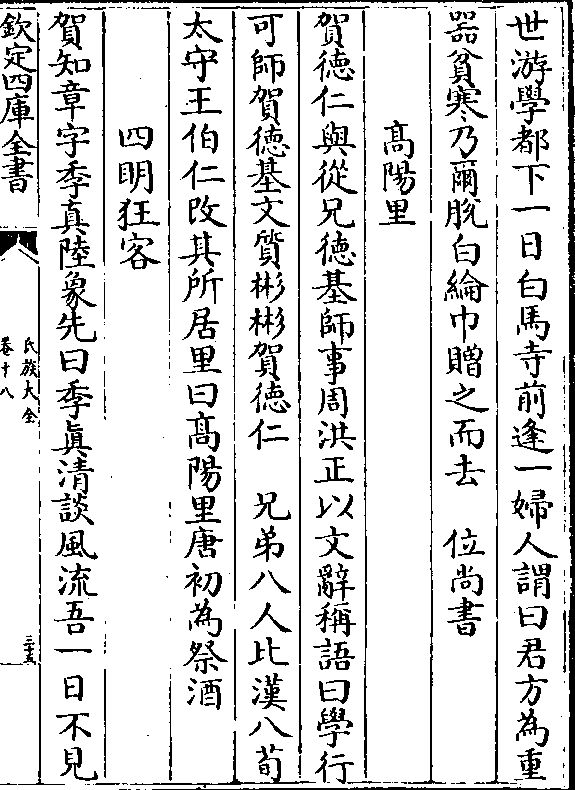 世游學都下一日白馬寺前逢一婦人謂曰君方為重
器貧寒乃爾脫白綸巾贈之而去 位尚書
髙陽里
賀德仁與從兄德基師事周洪正以文辭稱語曰學行
可師賀德基文質彬彬賀德仁 兄弟八人比漢八荀
太守王伯仁改其所居里曰髙陽里唐初為祭酒
四明狂客
賀知章字季真陸象先曰季真清談風流吾一日不見
欽定四庫全書
氏族大全
卷十八
三十五